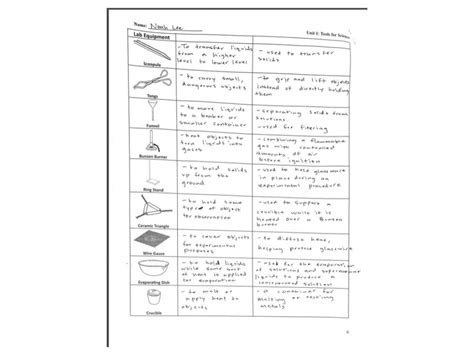 Name: Noah Lee
Unit 1: Tools for Science
Lab Equipment
- To transfer liquids
from a higher
level to lower level
- used to transfer
solids
Scoopula
- to carry small,
dangerous objects
- to grip and lift objects
instead of directly holding
them
Tongs
- to move liquids
to a beaker or
smaller container
- separating solids from
solutions
- used for filtering
Funnel
- heat objects to
turn liquids into
gasses
- combining a flammable
gas with controlled
amounts of air
before ignition
Bunsen Burner
- to hold solids
up from the
ground
- used to hold glassware
in place during an
experimental procedure
Ring Stand
- to hold some
type of object
for observation
- used to support a
crucible while it is
heated over a Bunsen
burner
Ceramic Triangle
- to cover objects
for experimental
purposes
- to diffuse heat,
helping protect glassware
Wire Gauze
- to hold liquids
while some sort
of heat is applied
for evaporation
- used for the evaporation
of solutions and supernatant
liquids to produce a
Evaporating Dish
- to melt or
apply heat to
objects
- a container for
melting or
metals
Crucible